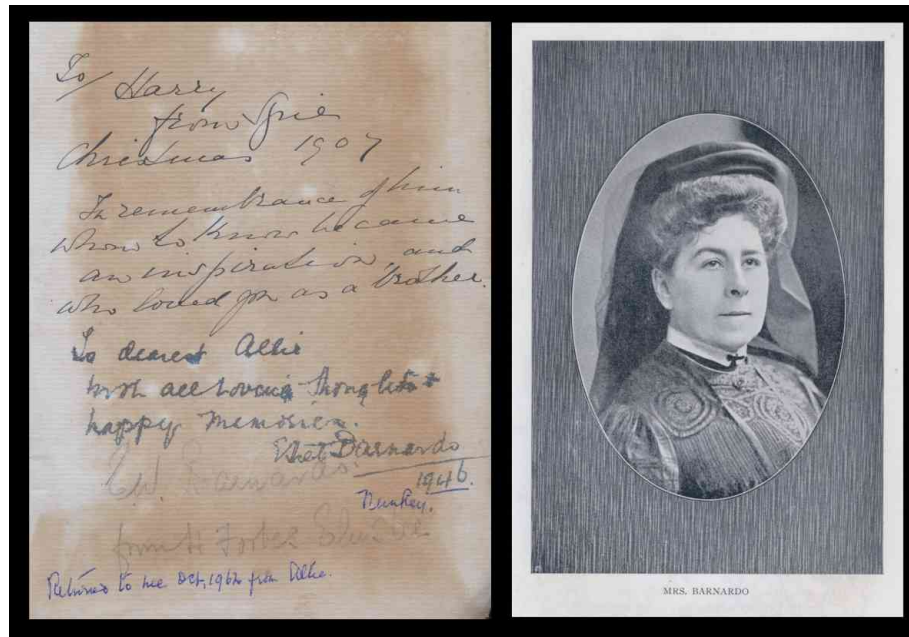 To/ Harry
from Syrie
Christmas 1907
In remembrance of him
whom to know became
an inspiration, and
who loved you as a brother.
To dearest Allie
with all loving thoughts +
happy memories.
Ethel Barnardo
1946.
Barnardo.
from H Forbes
Returned to me Oct, 1962 from Allie.
MRS. BARNARDO